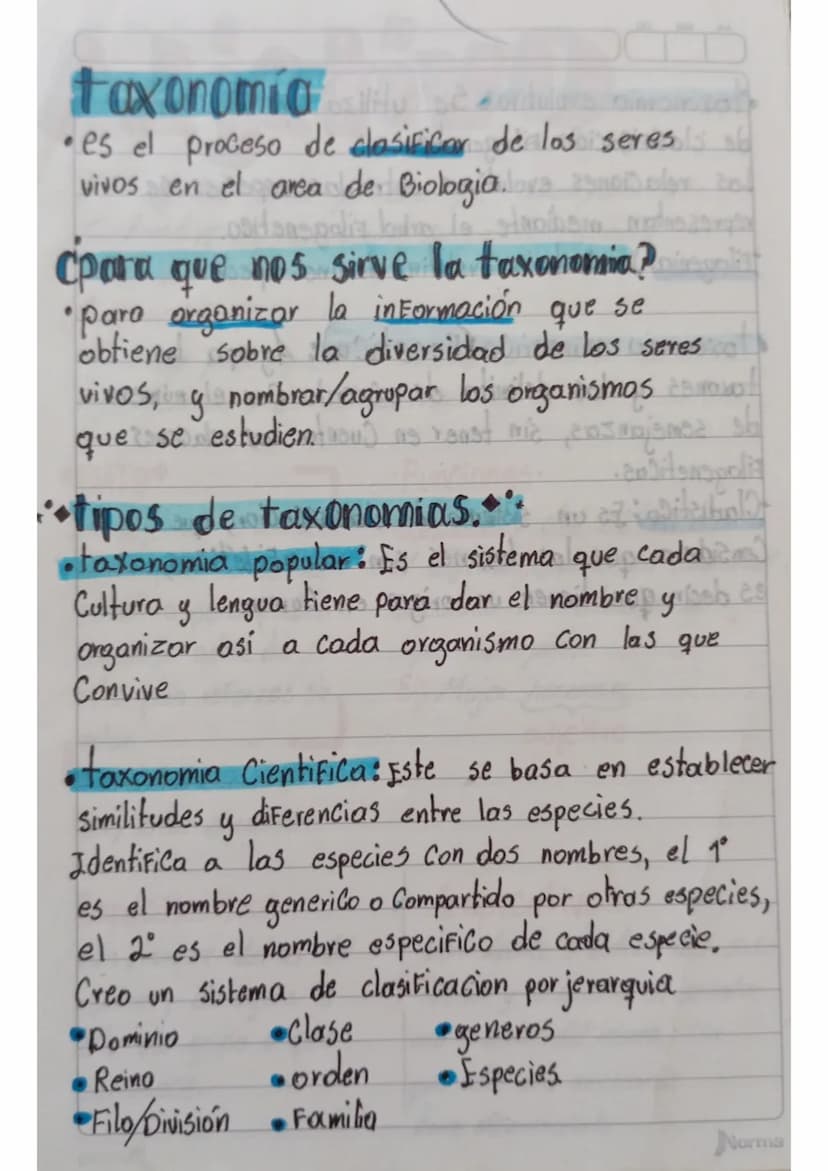 taxonomía
•es el proceso de clasificar de los seres
vivos en el area de Biologia.
¿para que nos sirve la taxonomia?
•para organizar la información que se
obtiene sobre la diversidad de los seres
vivos, y nombrar/agrupar los organismos
que se estudien.
tipos de taxonomias.
•taxonomia popular: Es el sistema que cada
Cultura y lengua tiene para dar el nombre y
organizar así a cada organismo con las que
Convive
•taxonomia Cientifica: Este se basa en establecer
similitudes y diferencias entre las especies.
Identifica a las especies con dos nombres, el 1°
es el nombre generico o Compartido por otras especies,
el 2° es el nombre especifico de cada especie.
Creo un sistema de clasificacion por jerarquia
•Dominio •Clase •generos
•Reino •orden •Especies
•Filo/División •Familia
Norma